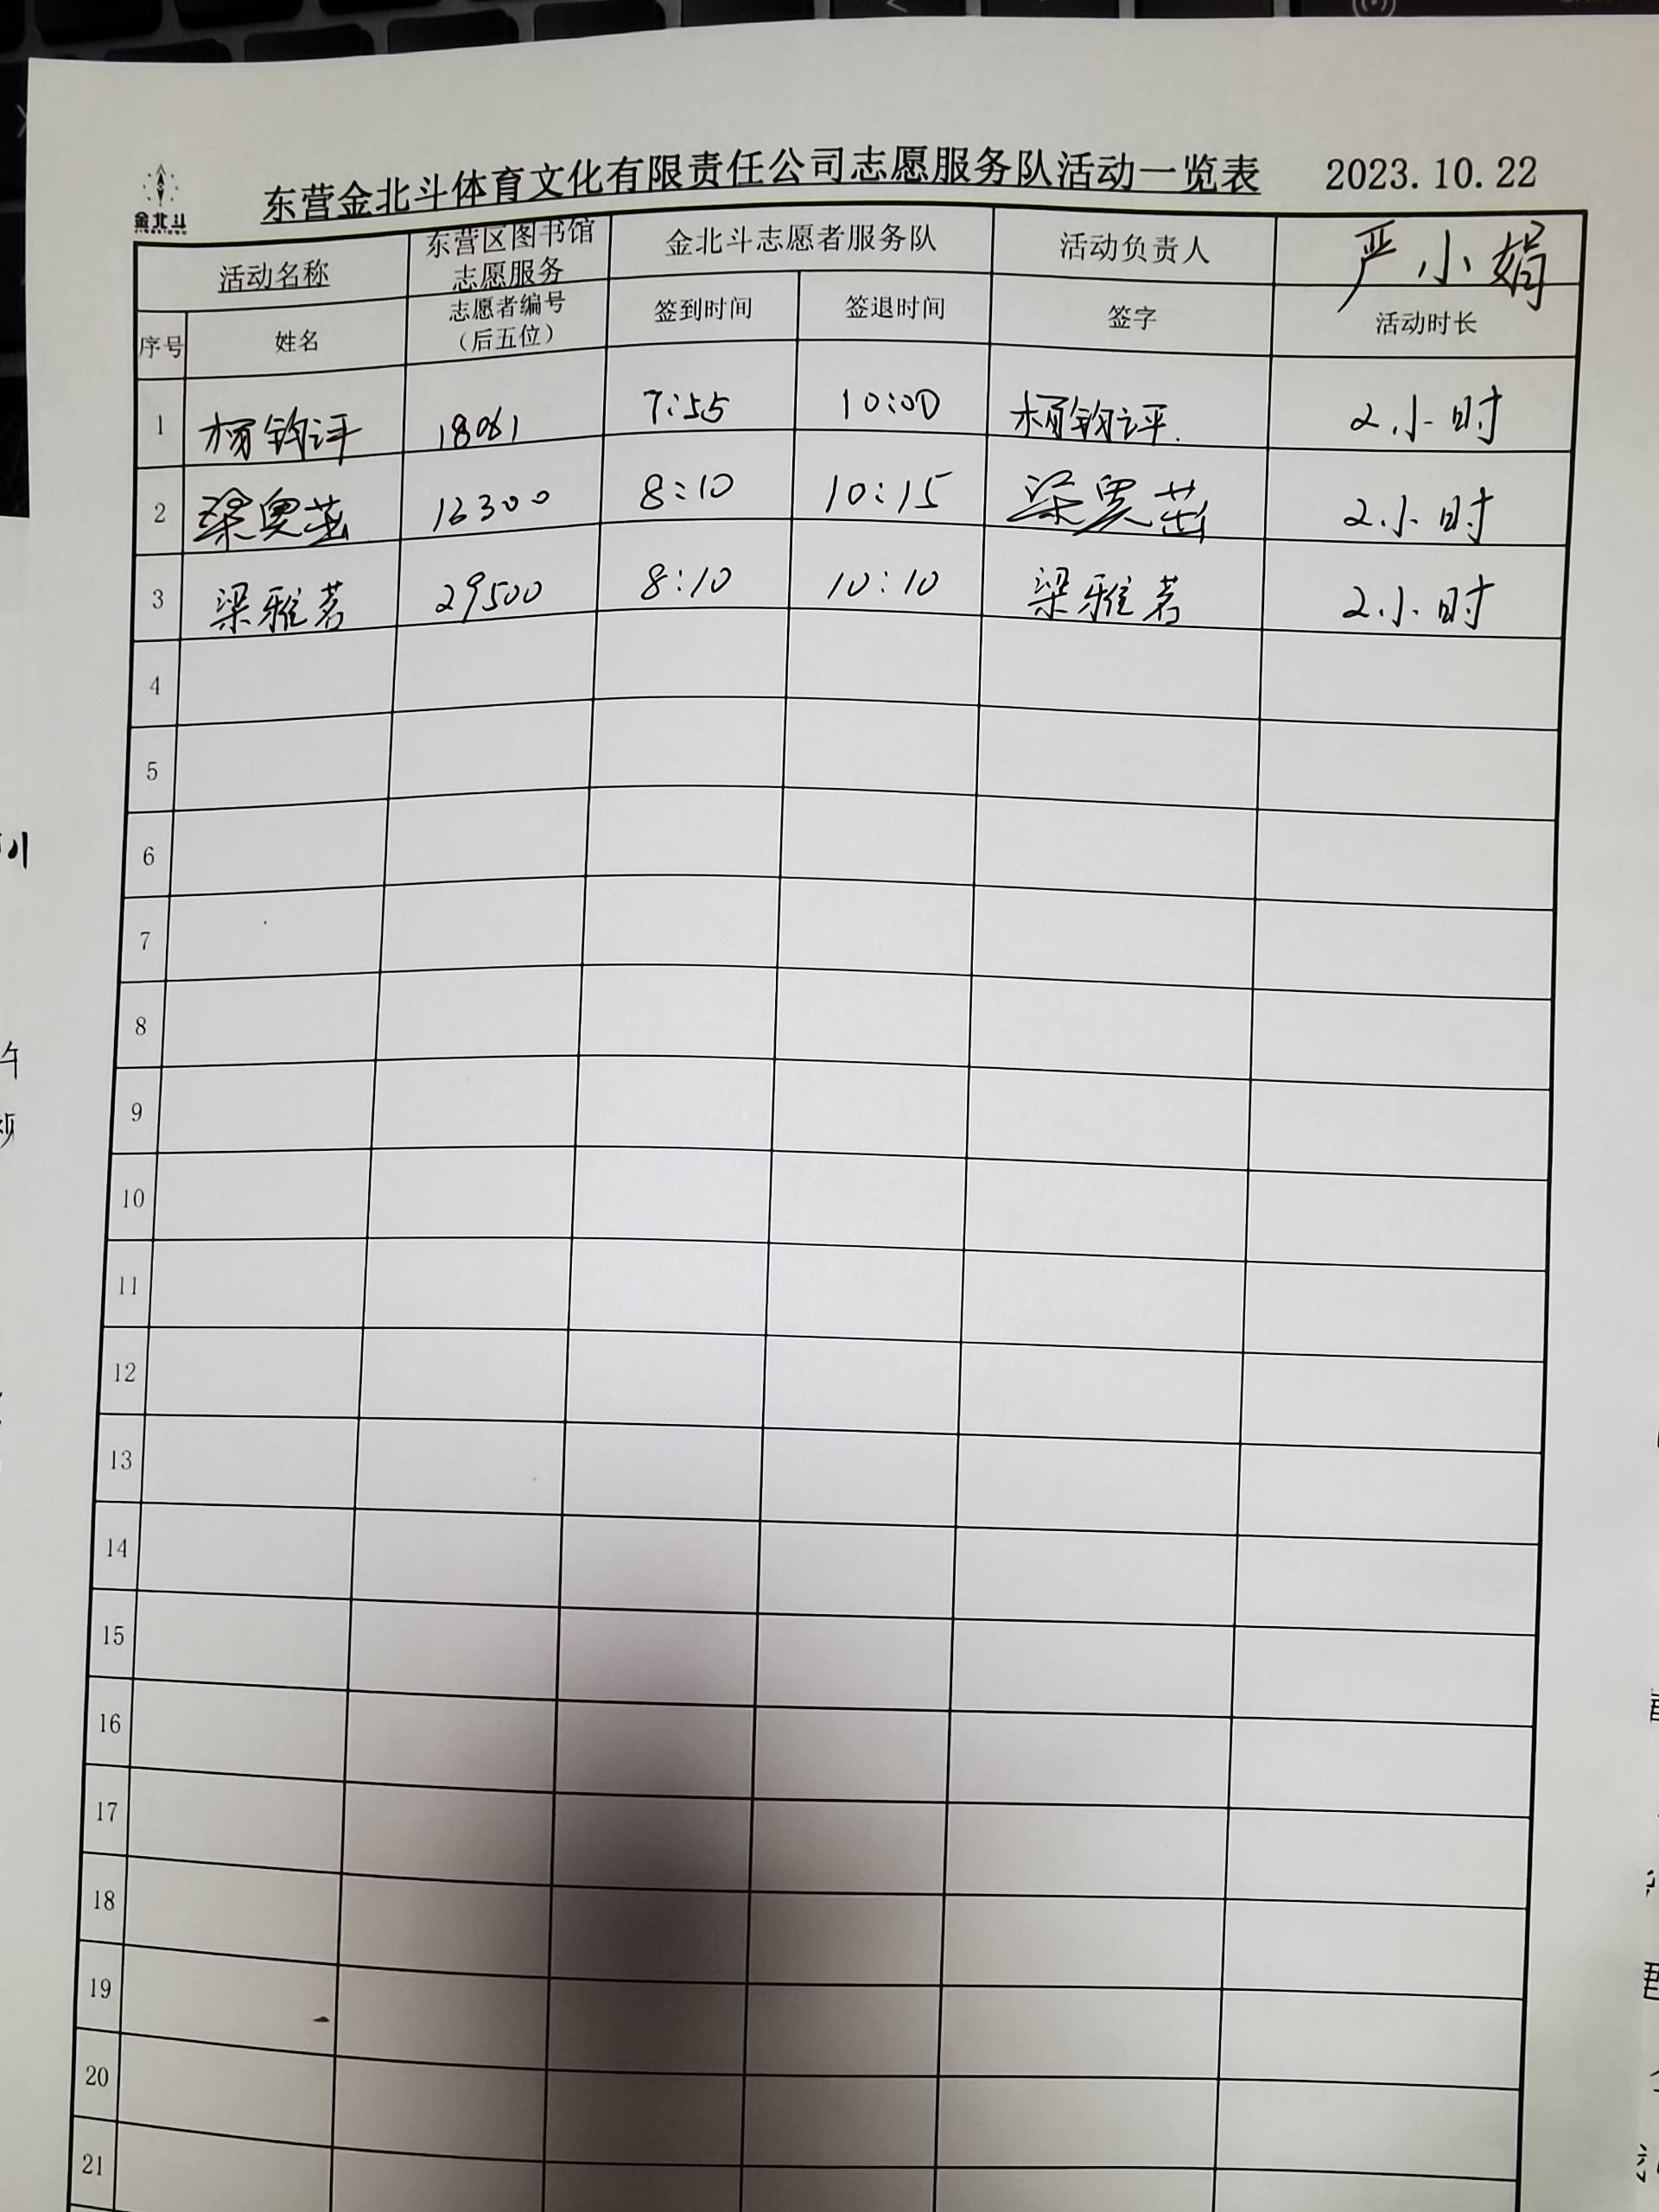 金北斗
东营金北斗体育文化有限责任公司志愿服务队活动一览表 2023.10.22
活动名称 东营区图书馆志愿服务 金北斗志愿者服务队 活动负责人 严小娟
序号 姓名 志愿者编号（后五位） 签到时间 签退时间 签字 活动时长
1 杨钧评 18061 7:55 10:00 杨钧评. 2小时
2 梁奥茁 16300 8:10 10:15 梁奥茁 2小时
3 梁雅茗 29500 8:10 10:10 梁雅茗 2小时
4
5
6
7
8
9
10
11
12
13
14
15
16
17
18
19
20
21